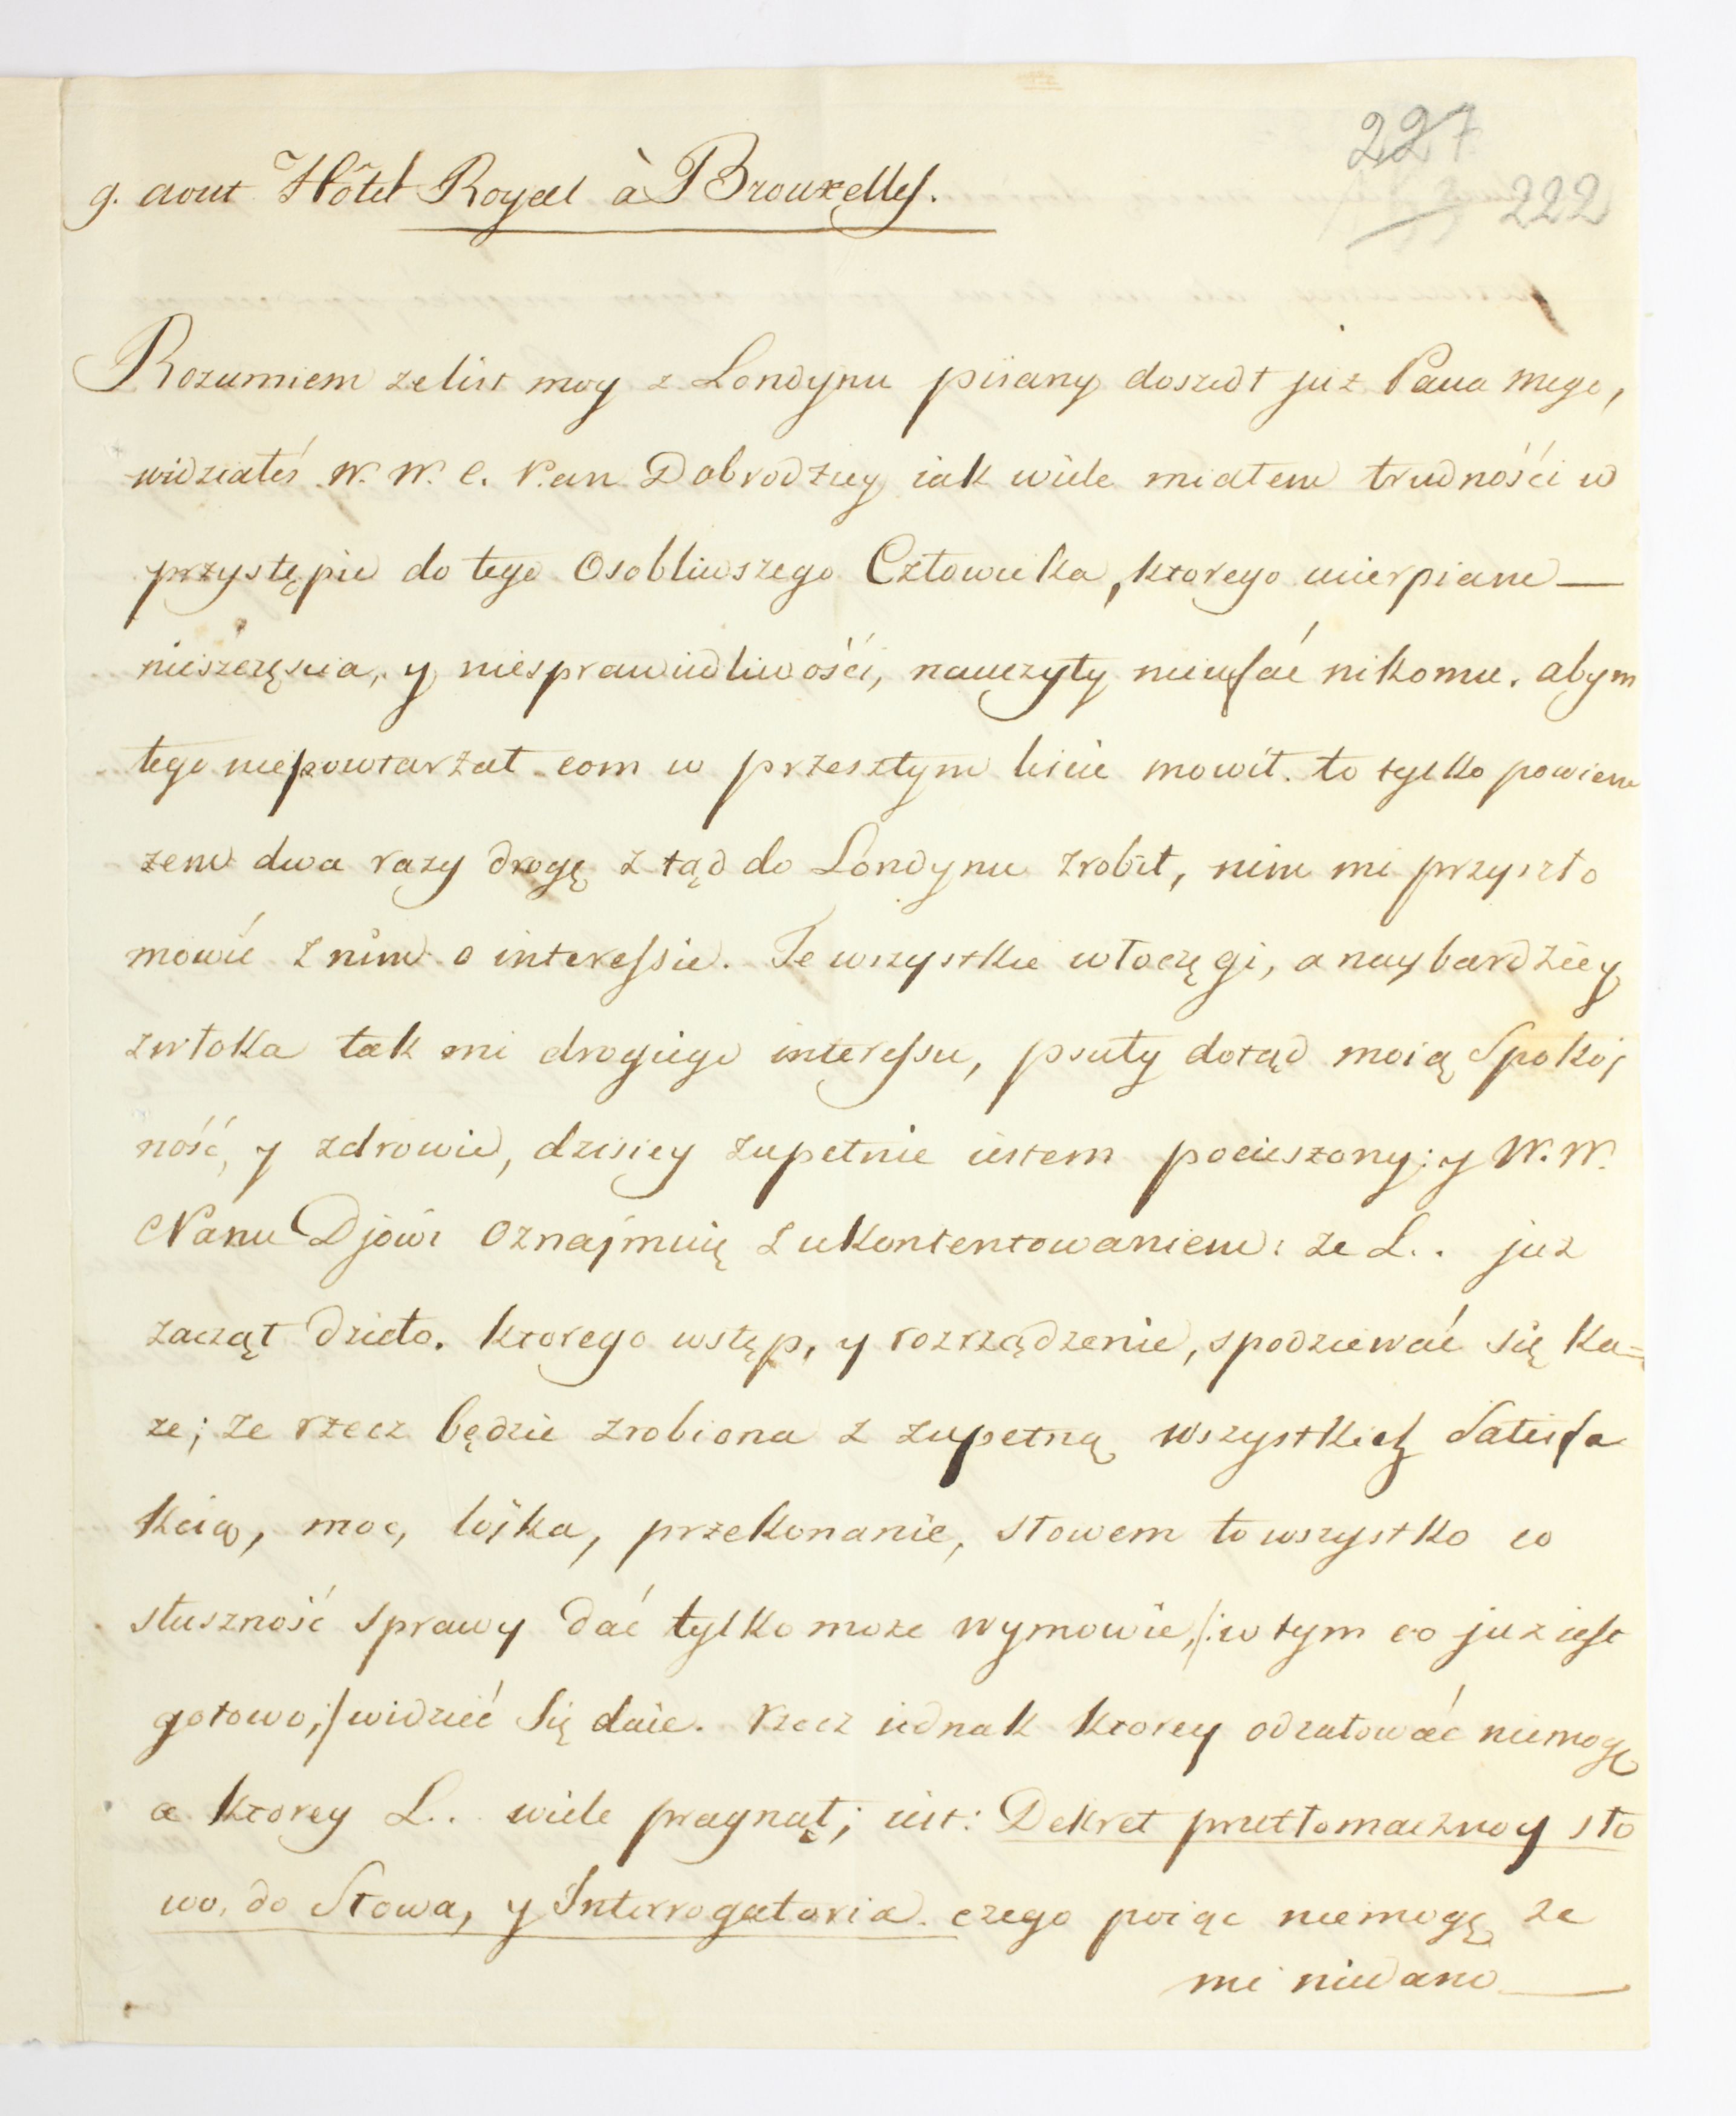 227
222
9. aout Hôtel Royal à Brouxelles.
Rozumiem ze list moy z Londynu pisany doszedł już Pana mego,
widziałeś W. W. C. Pan Dobrodziey iak wiele miałem trudnośći w
przystępie do tego Osobliwszego Człowieka, ktorego ucierpiane —
nieszczęscia, y niesprawiedliwośći, nauczyły nieufać nikomu. abym
tego niepowtarzał com w przeszłym liście mowił. to tylko powiem
zem dwa razy drogę z tąd do Londynu zrobił, nim mi przyszło
mowić z nim o interessie. Te wszystkie włoczęgi, a naybardziey
zwłoka tak mi drogiego interessu, psuły dotąd moią Spokoj
ność, y zdrowie, dzisiey zupełnie iestem pocieszony: y W. W.
Panu Djowi oznajmuię z ukontentowaniem: ze L.. juz
zaczął dzieło. ktorego wstęp, y rozrządzenie, spodziewać się ka=
ze; ze rzecz będzie zrobiona z zupełną wszystkich Satisfa
kcią, moc, lojka, przekonanie, słowem to wszystko co
słuszność sprawy dać tylko moze wymowie, /: w tym co juz iest
gotowo; :/ widzieć się daie. rzecz iednak ktorey odzałować niemogę
a ktorey L.. wiele pragnął; iest: Dekret przetłomaczony sło
wo, do Słowa, y Interrogatoria. czego poiąc niemogę ze
mi niedano —